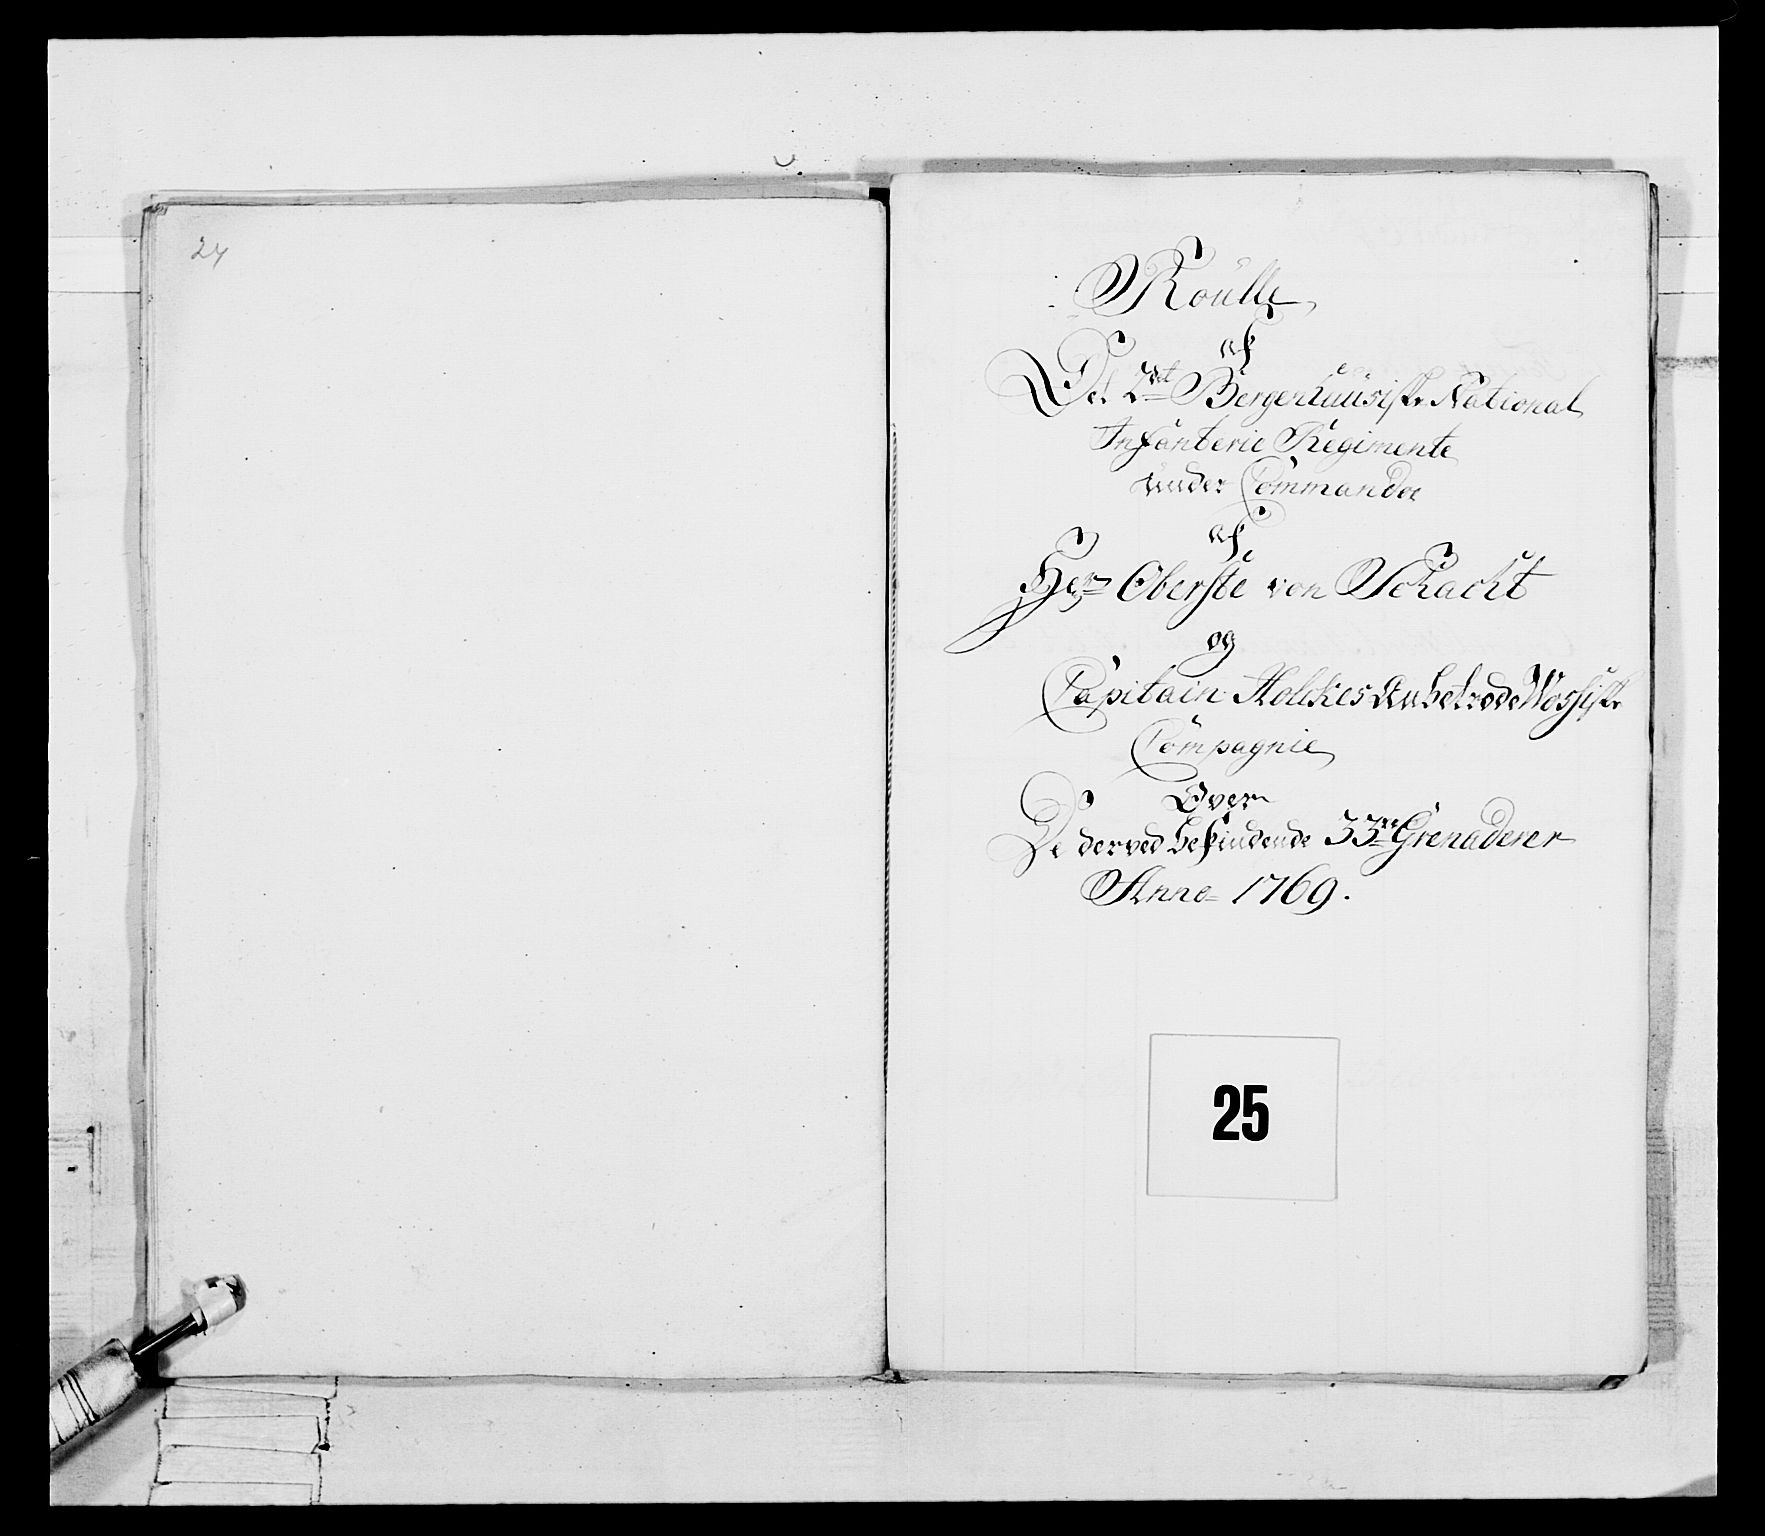 24
Roülle
af
Det 2det Bergenhuusiske National
Infanterie Regimente
under Commandoe
af
Herr Oberste von Schacht
og
Capitain Holckes Anbetroede Wossiske
Compagnie
Over
De derved befindende 33re Grenaderer
Anno 1769.
25